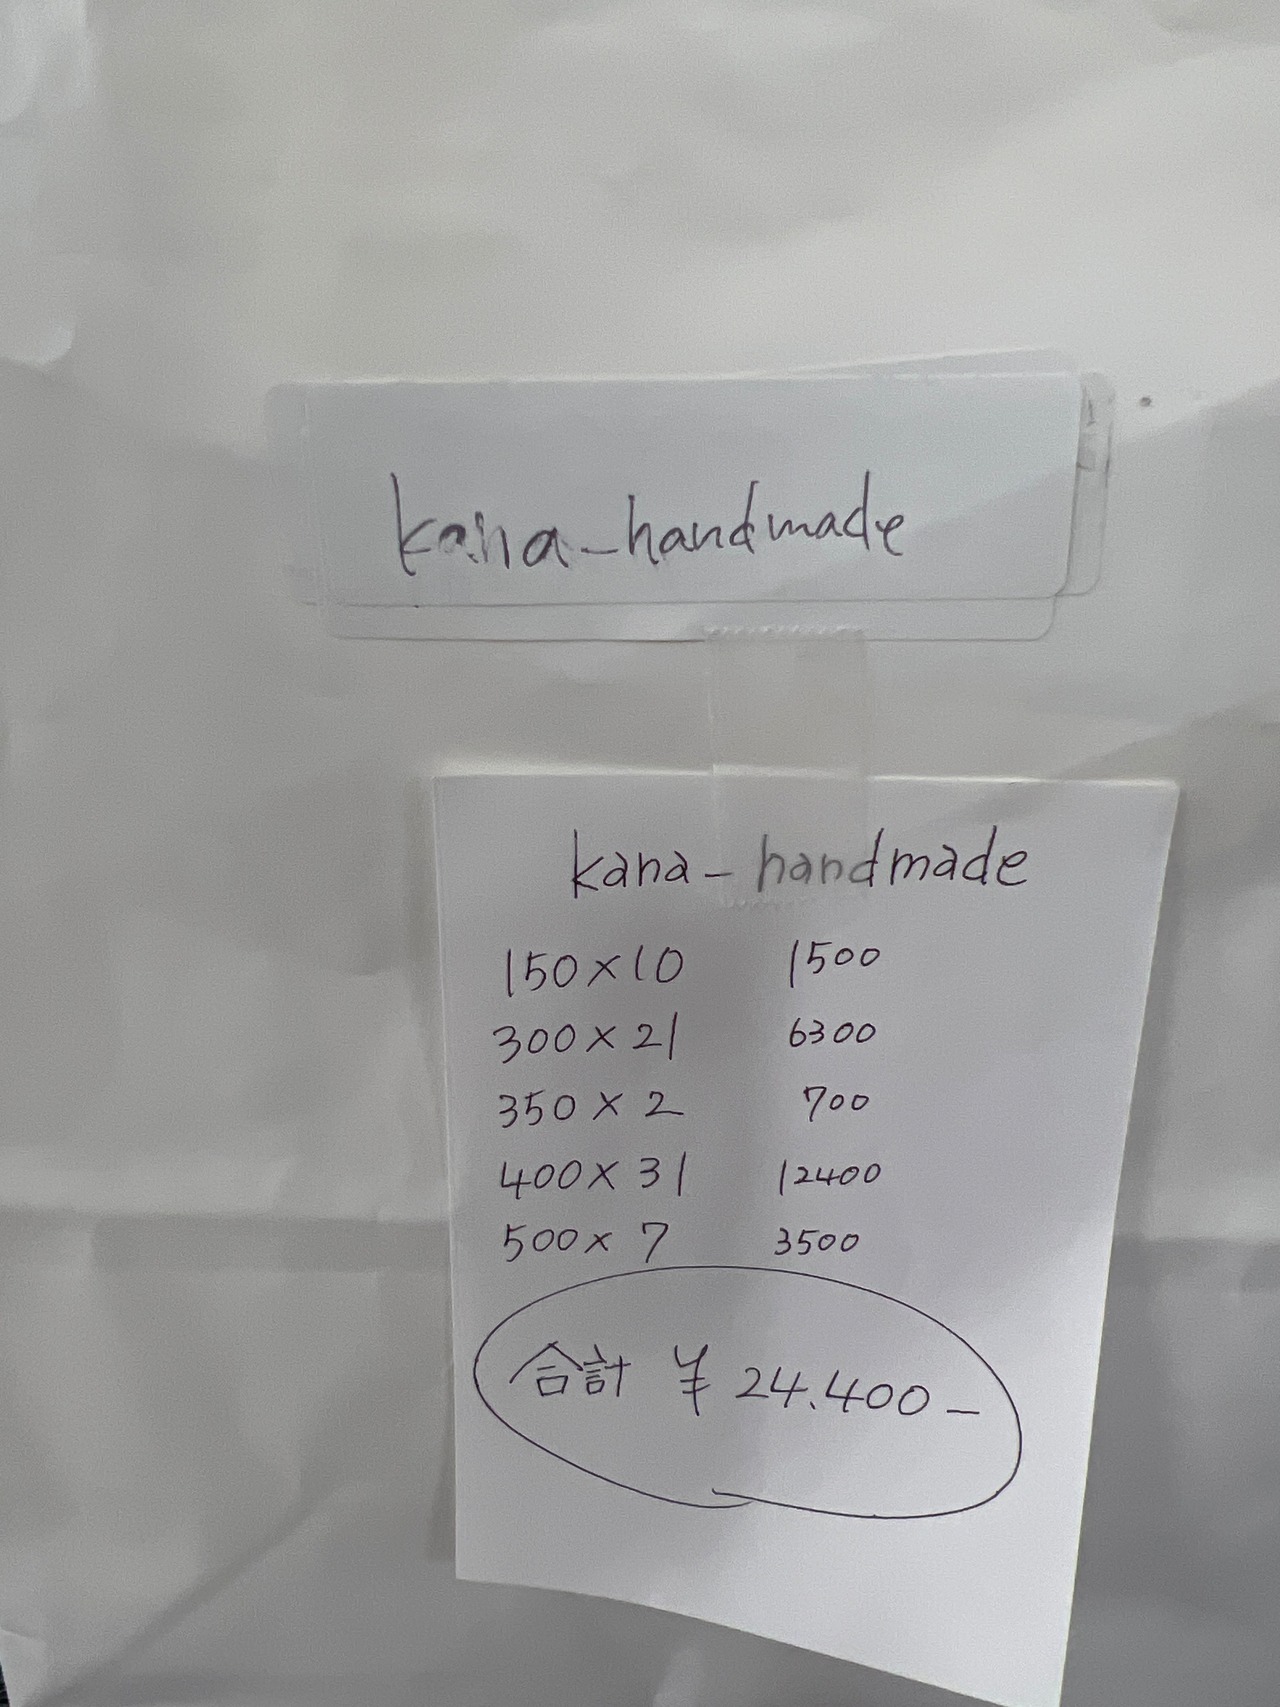 kana_handmade
kana_handmade
150×10 1500
300×21 6300
350×2 700
400×31 12400
500×7 3500
合計 ¥24.400-